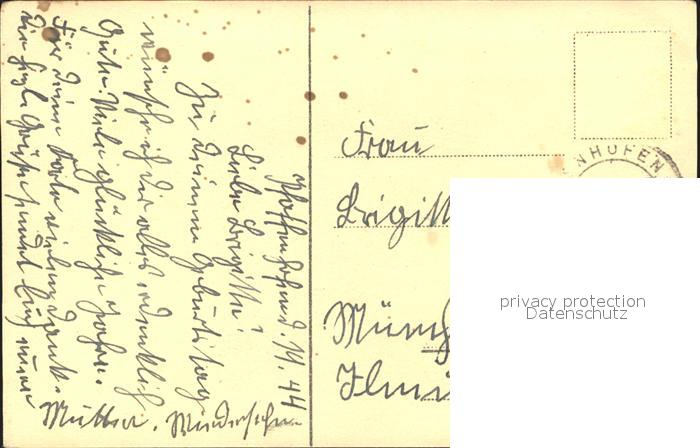 Pfaffenhofen d. 14. 44
Liebe Brigitte!
Zu deinem Geburtstag
wünsch ich dir alles erdenklich
Gute. Viele glückliche Jahre.
Für deine Karte vielen Dank.
Viele Grüße sendet
Mutter. Wiedersehen
Frau
Brigitt
Münch
Ilm
NHOFEN
privacy protection
Datenschutz